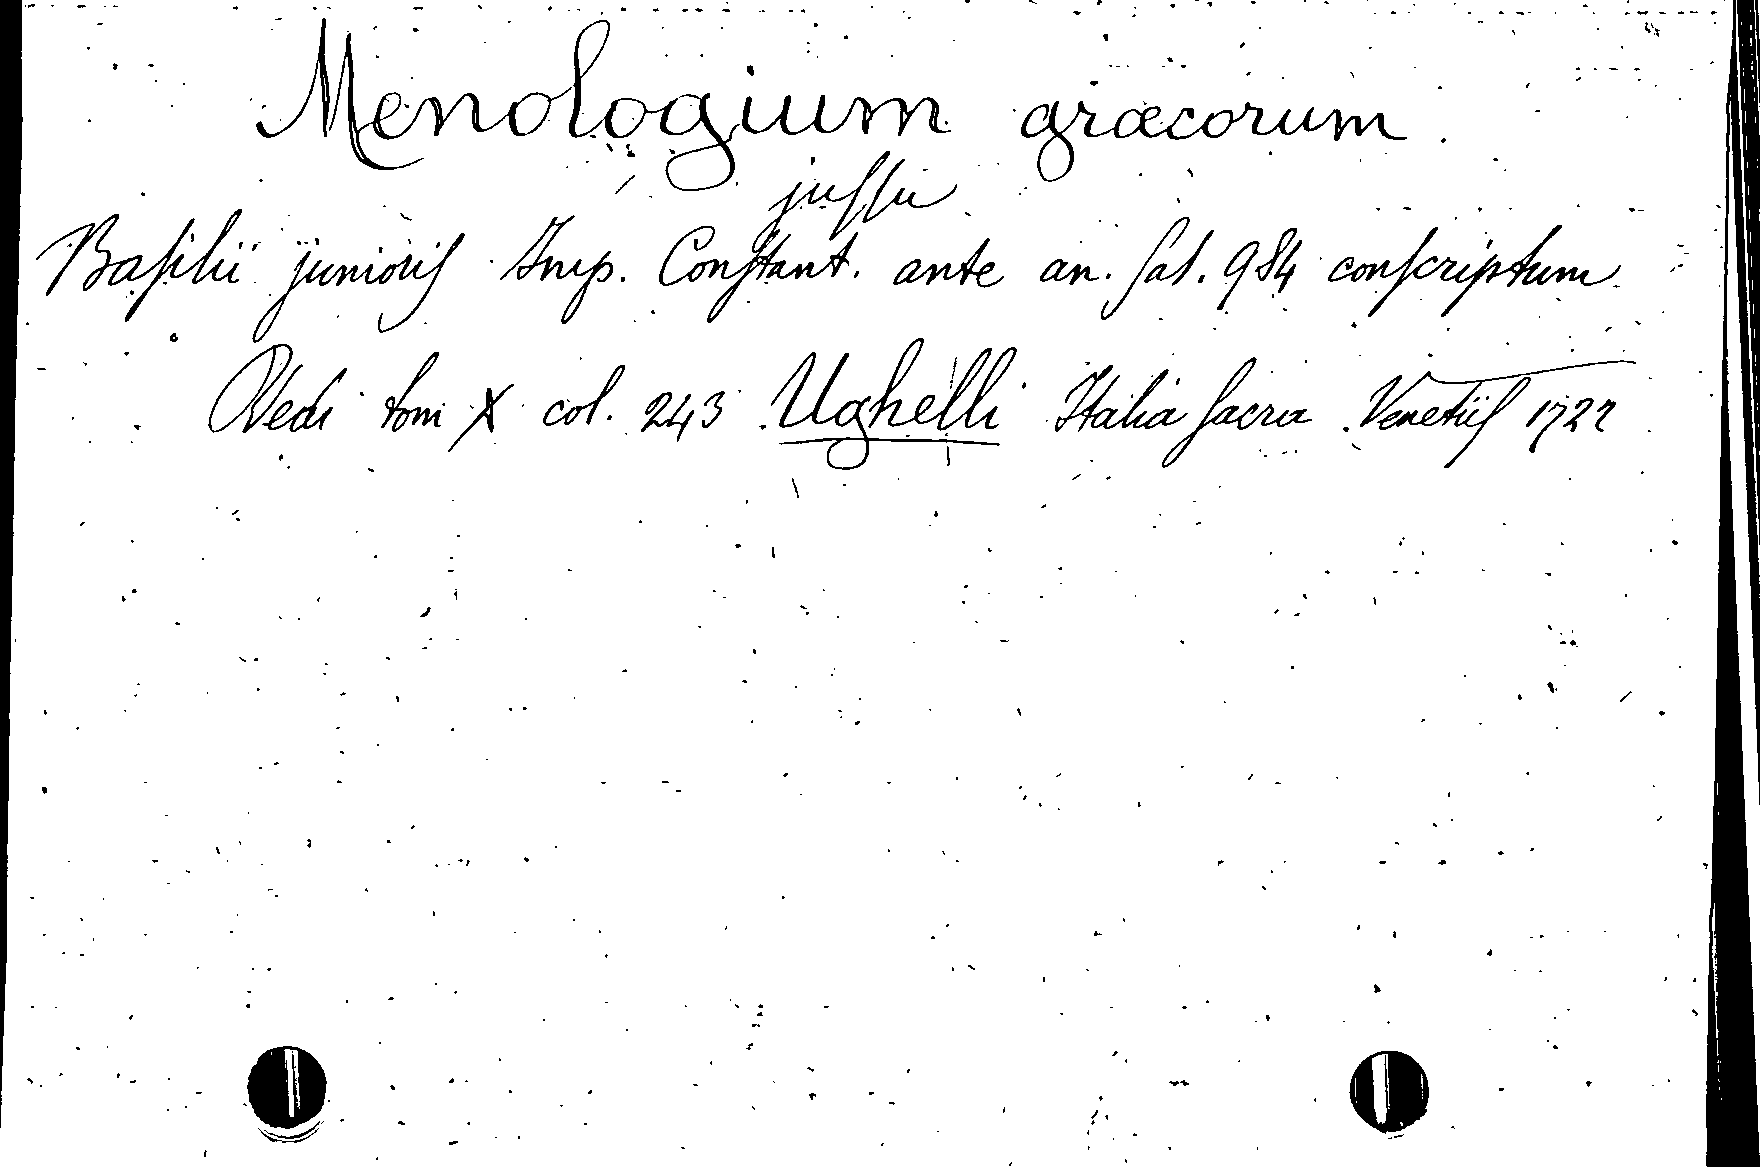 Menologium græcorum
juſſu
Baſilii junioriſ Imp. Conſtant. ante an. ſal. 984 conſcriptum
Vedi tom X col. 243 Ughelli Italia ſacra Venetiiſ 1722